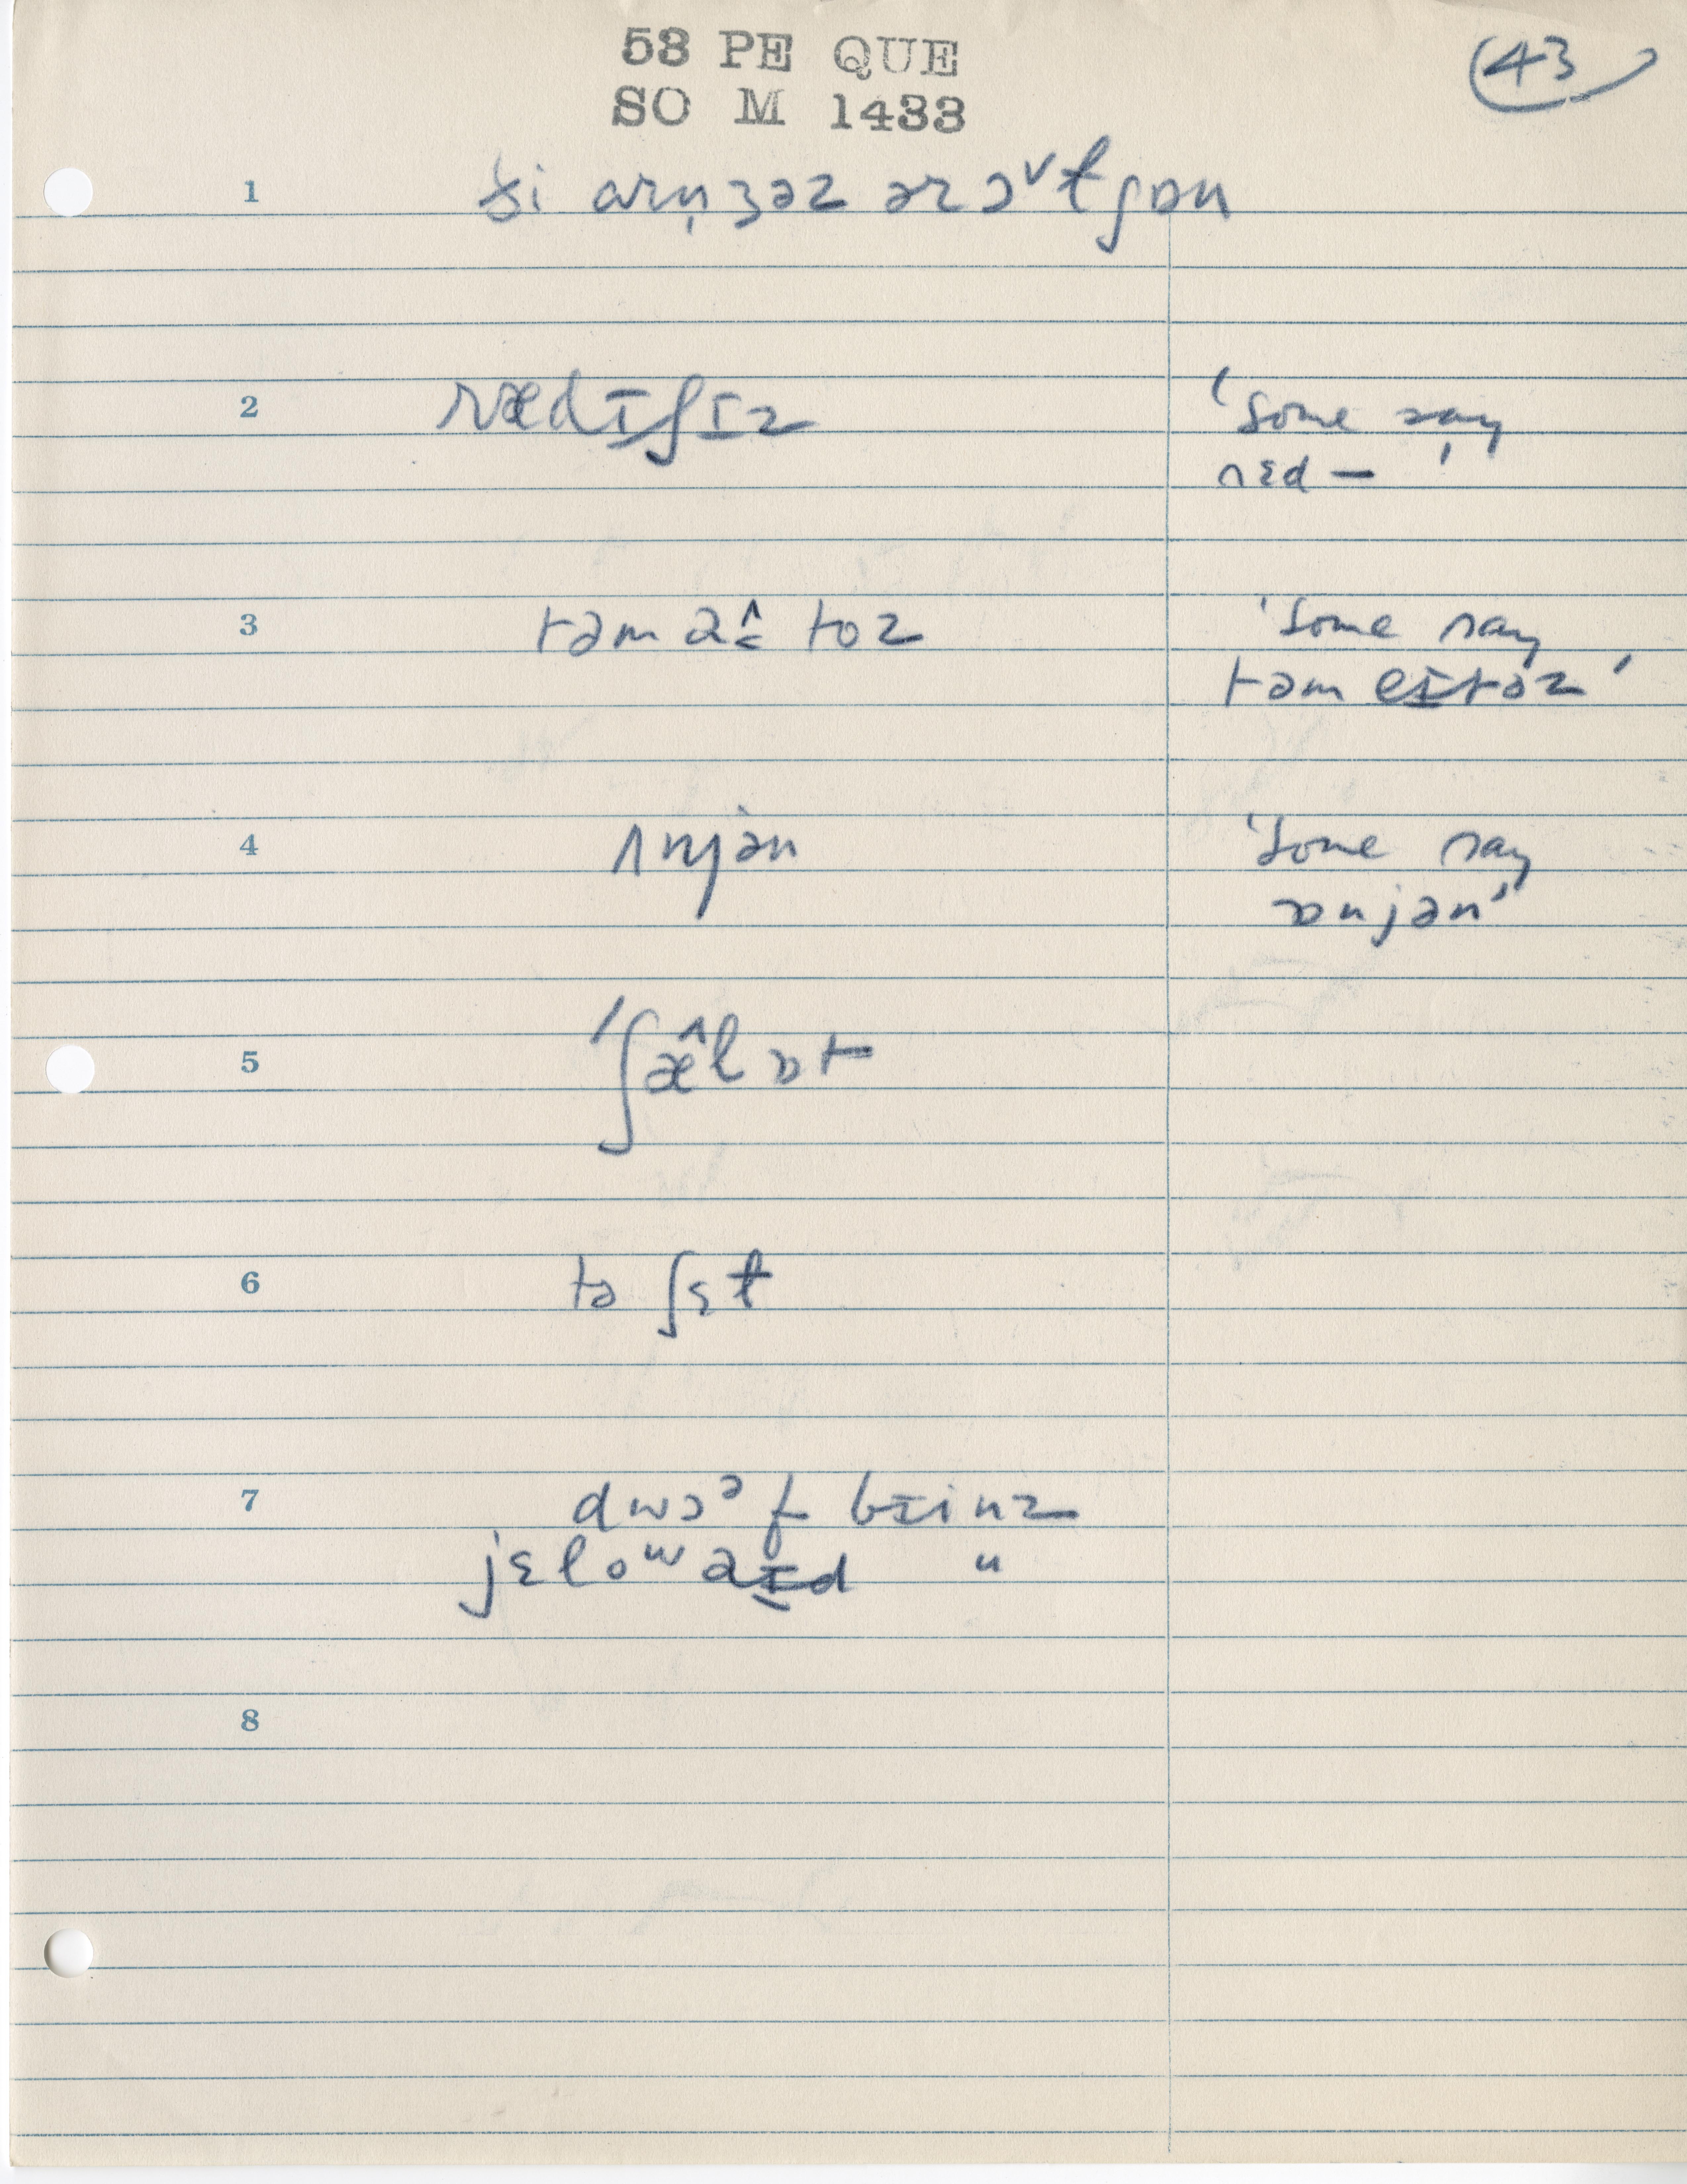 53 PE QUE
SO M 1433
43
1 ði arn̩ʒəz ər ɔᵛɫ gɒn
2 rædɪʃɪz 'some say
rɛd — '
3 təma̭ˆtoz 'some say
təmeɪtoz'
4 ʌnjən 'some say
ɒnjən'
5 ʹʃæˆlɒt
6 tə ʃɛɫ
7 dwɔᵊf bɪinz
jɛloʷ aɪd "
8